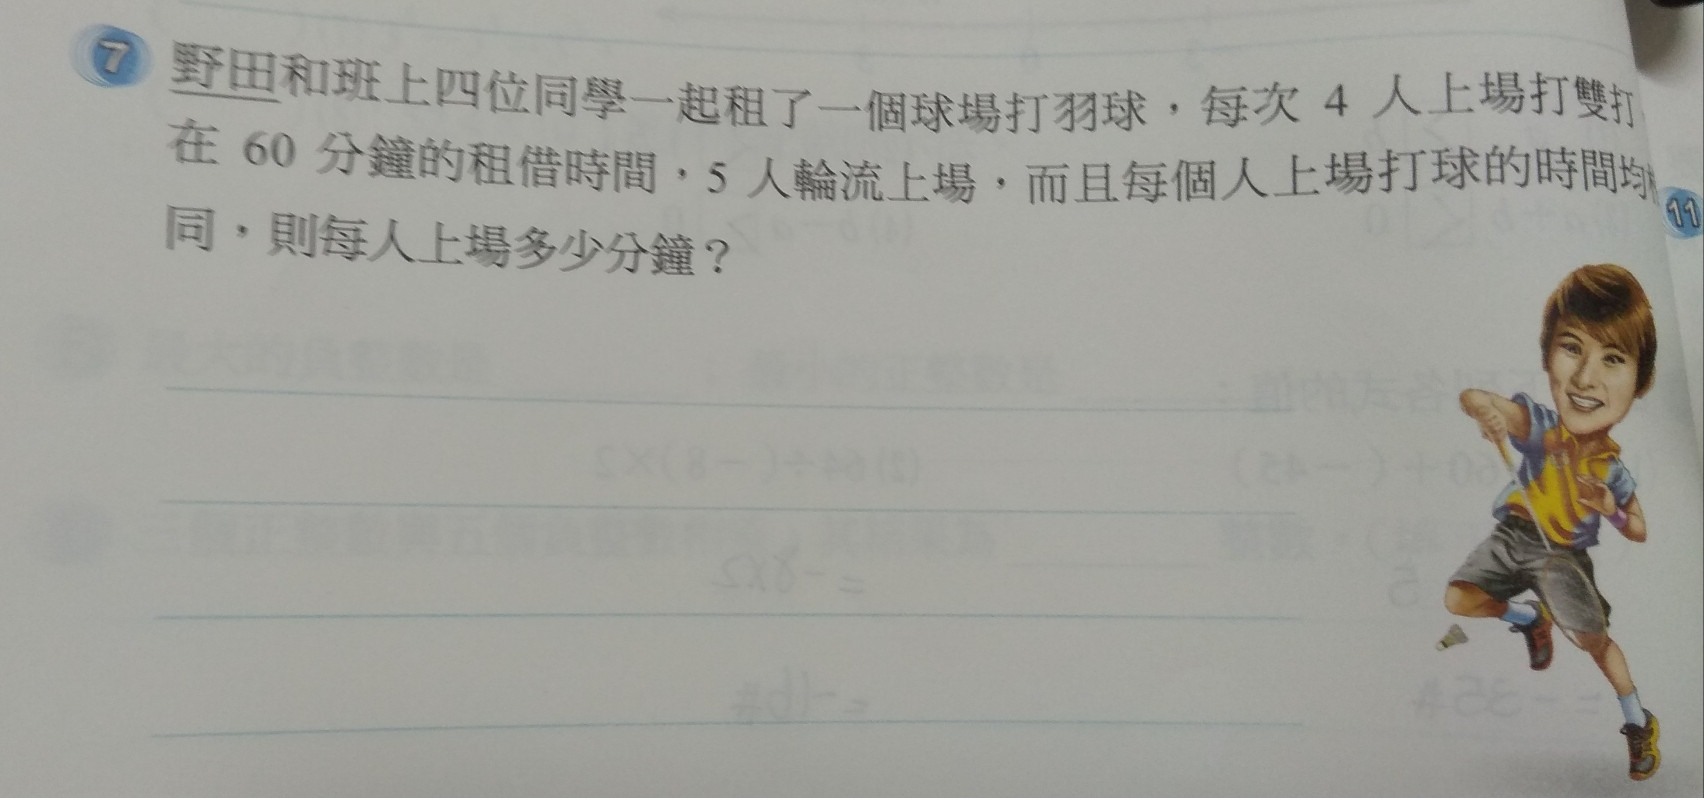 7 野田和班上四位同學一起租了一個球場打羽球，每次 4 人上場打雙打
在 60 分鐘的租借時間，5 人輪流上場，而且每個人上場打球的時間均
同，則每人上場多少分鐘？
11